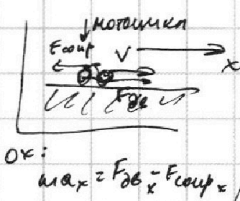 мотоцикл
Fсопр V
x
Fдв
ох:
maₓ = Fдвₓ - Fсопрₓ,